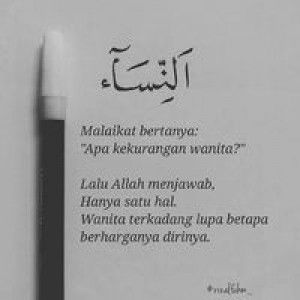 اَلنِّسَاۤء
Malaikat bertanya:
"Apa kekurangan wanita?"
Lalu Allah menjawab,
Hanya satu hal.
Wanita terkadang lupa betapa
berharganya dirinya.